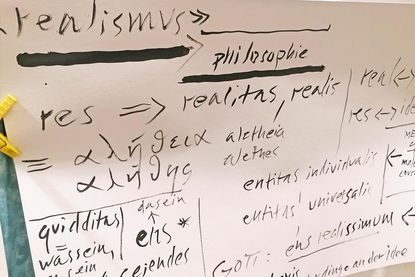 realismus»
philosophie
res => realitas, realis
= αλήθεια aletheia
αλήθής alethes
real<->
res <->
entitas individualis
entitas universalis
quidditas
wassein,
dasein
ens*
seiendes
GOTT: ens realissimum <-